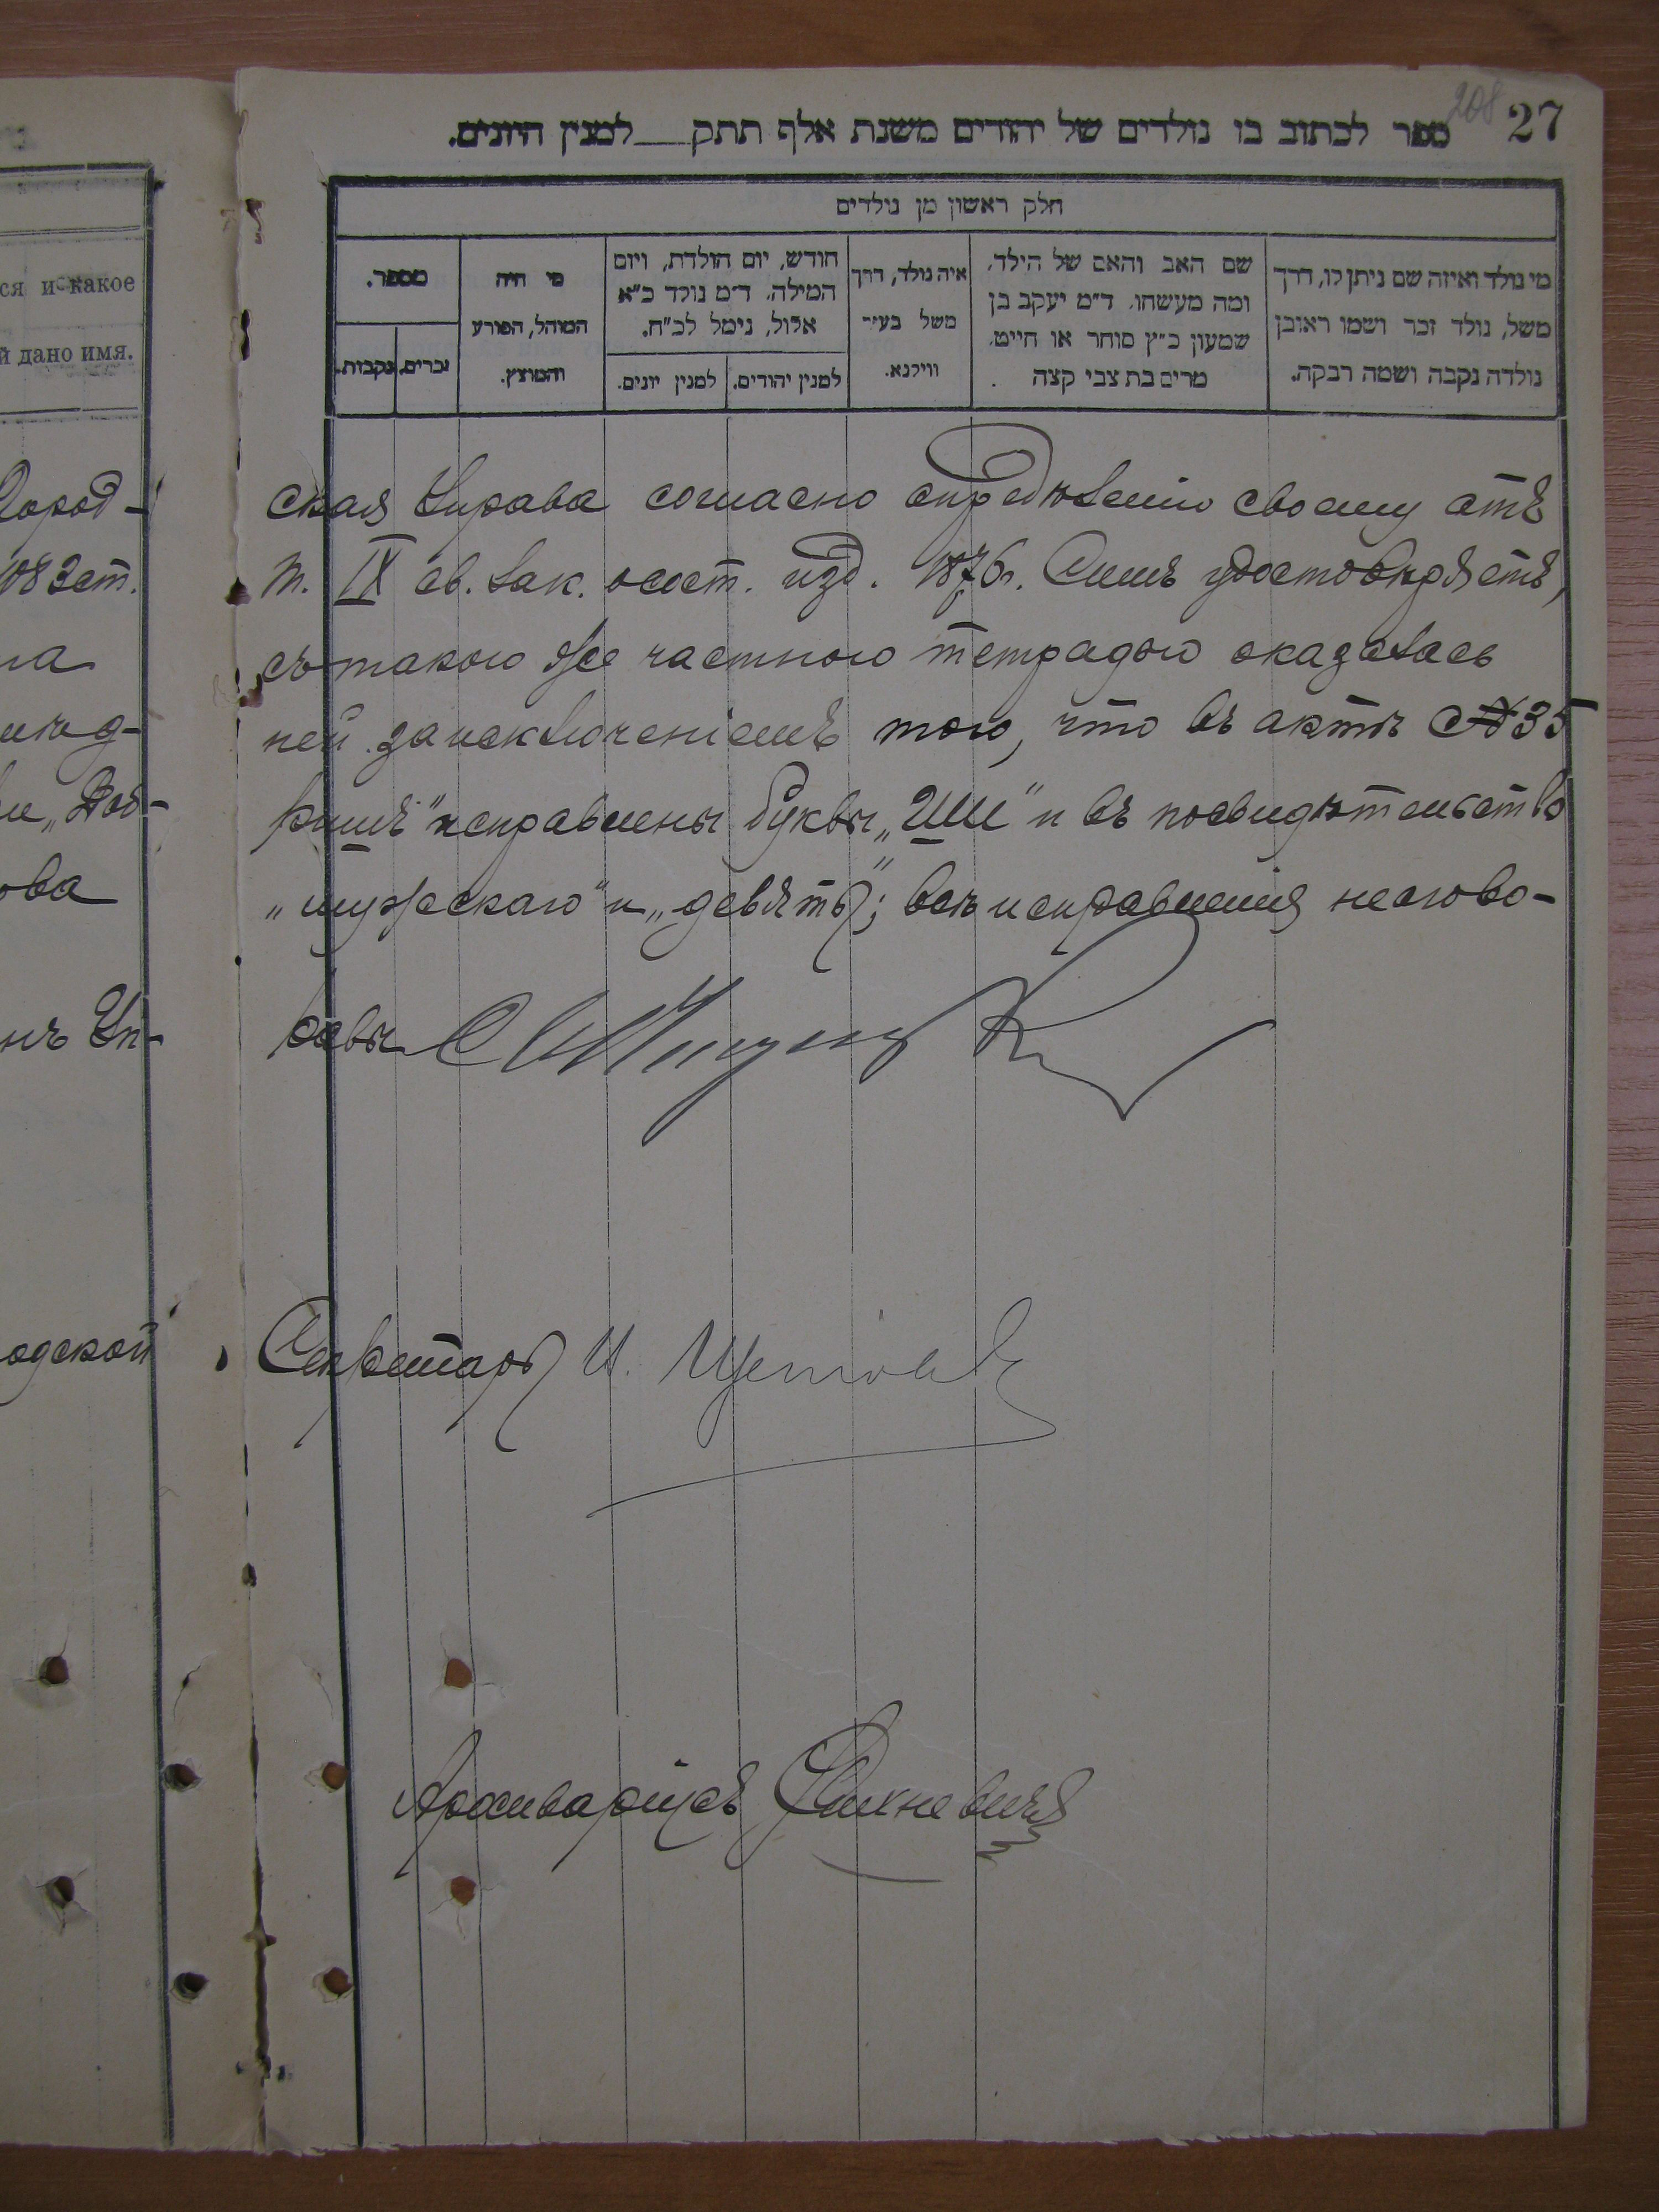 208 27
ספר לכתוב בו נולדים של יהודים משנת אלף תתק___למנין היונים.
חלק ראשון מן נולדים
מי נולד ואיזה שם ניתן לו, דרך
משל, נולד זכר ושמו ראובן
נולדה נקבה ושמה רבקה.
שם האב והאם של הילד,
ומה מעשהו. ד"מ יעקב בן
שמעון כ"ץ סוחר או חייט.
מרים בת צבי קצה
איה נולד, דרך
משל בעיר
ווילנא.
חודש, יום הולדת, ויום
המילה. ד"מ נולד כ"א
אלול, נימל לכ"ח.
למנין יהודים.
למנין יונים.
מי היה
המוהל, הפורע
והמוצץ.
מספר.
זכרים.
נקבות.
ся и какое
й дано имя.
Город-
1083 ст.
на
ова
нъ Уп-
одской
ская Управа согласно опредѣленію своему отъ
т. IX св. Зак. о сост. изд. 1876 г. Симъ удостовѣряетъ,
съ такою же частною тетрадью оказалась
ней за исключеніемъ того, что въ актѣ №35
исправлены буквы „ши" и въ посвидѣтельство
„мужскаго" и „девять"; всѣ исправленія неогово-
равы
Секретарь И.
Архиваріусъ